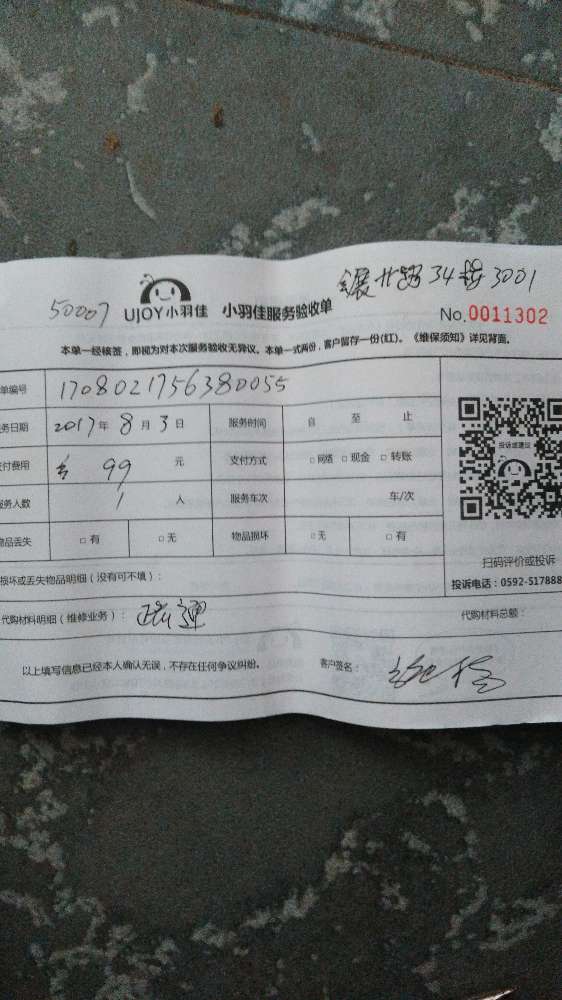 34 3001
50007 UJOY小羽佳 小羽佳服务验收单
No.0011302
本单一经核签，即视为对本次服务验收无异议。本单一式两份，客户留存一份(红)。《维保须知》详见背面。
单编号 1708021756380055
务日期 2017年8月3日 服务时间 自 至 止
付费用 99 元 支付方式 □网络 □现金 □转账
投诉或建议
服务人数 1 人 服务车次 车/次
物品丢失 □有 □无 物品损坏 □无 □有
扫码评价或投诉
损坏或丢失物品明细（没有可不填）：
投诉电话：0592-517888
代购材料明细（维修业务）：
代购材料总额：
以上填写信息已经本人确认无误，不存在任何争议纠纷。 客户签名：